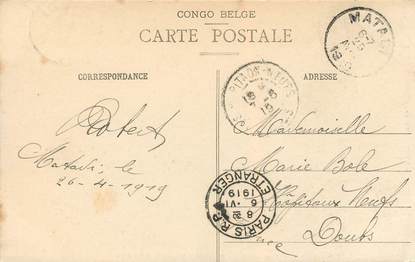 CONGO BELGE
CARTE POSTALE
CORRESPONDANCE
ADRESSE
MATADI
Robert
Matadi, le
26-4-1919
Mademoiselle
Marie Bole
Hôpitaux Neufs
Doubs
PARIS R.P.
8
6 • VI
1919
ETRANGER